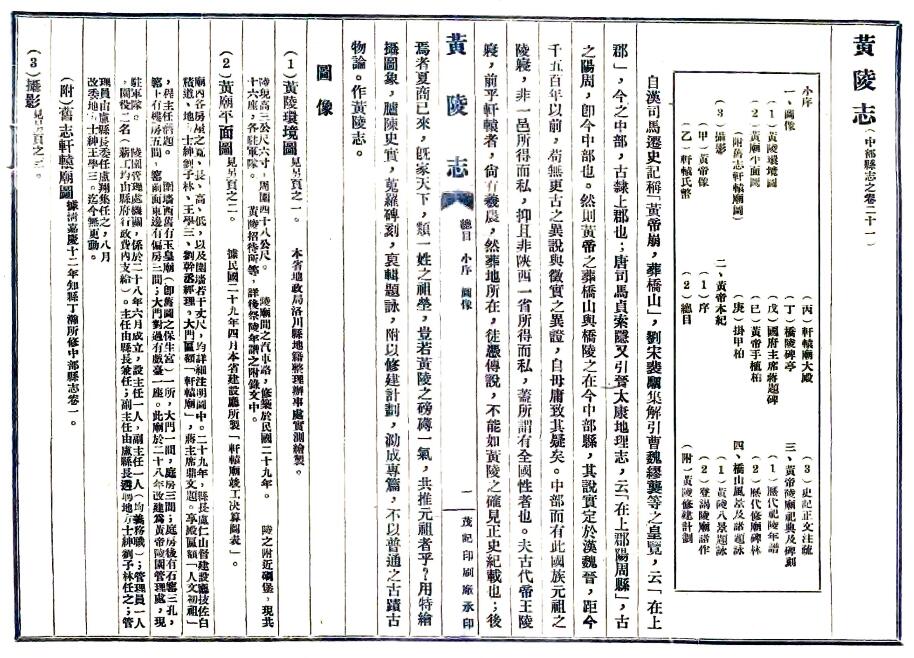 黃陵志（中部縣志之卷二十一）
小序
一、圖像
（1）黃陵環境圖
（2）黃廟平面圖
（附舊志軒轅廟圖）
（3）攝影
（甲）黃帝像
（乙）軒轅氏幣
（丙）軒轅廟大殿
（丁）橋陵碑亭
（戊）國府主席蔣題碑
（己）黃帝手植柏
（庚）掛甲柏
二、黃帝本紀
（1）序
（2）總目
（3）史記正文注疏
三、黃帝陵廟祀典及碑刻
（1）歷代祀陵年譜
（2）歷代修廟碑林
四、橋山風景及諸題詠
（1）黃陵八景題詠
（2）登謁陵廟諸作
（附）黃陵修建計劃
自漢司馬遷史記稱「黃帝崩，葬橋山」，劉宋裴駰集解引曹魏繆襲等之皇覽，云「在上
郡」，今之中部，古隸上郡也；唐司馬貞索隱又引晉太康地理志，云「在上郡陽周縣」，古
之陽周，卽今中部也。然則黃帝之葬橋山與橋陵之在今中部縣，其說實定於漢魏晉，距今
千五百年以前，苟無更古之異說與徵實之異證，自毋庸致其疑矣。中部而有此國族元祖之
陵寢，非一邑所得而私，抑且非陝西一省所得而私，蓋所謂有全國性者也。夫古代帝王陵
寢，前乎軒轅者，尙有羲農，然葬地所在，徒憑傳說，不能如黃陵之確見正史紀載也；後
黃陵志
總目 小序 圖像
一
茂記印刷廠承印
焉者夏商已來，旣家天下，類一姓之祖塋，豈若黃陵之磅礴一氣，共推元祖者乎？用特繪
攝圖象，臚陳史實，蒐羅碑刻，裒輯題詠，附以修建計劃，泐成專篇，不以普通之古蹟古
物論。作黃陵志。
圖像
（1）黃陵環境圖見另頁之一。 本省地政局洛川縣地籍整理辦事處實測繪製。
陵現高三公尺六寸，周圍四十八公尺。 陵廟間之汽車路，修築於民國二十九年。 陵之附近碉堡，現共
十六座，各駐軍隊。 黃陵招待所等，詳後祭陵年譜之附錄文中。
（2）黃廟平面圖見另頁之二。 據民國二十九年四月本省建設廳所製「軒轅廟竣工決算圖表」。
廟內各房屋之寬、長、高、低，以及圍墻若干丈尺，均詳細注明圖中。二十九年，縣長盧仁山督建設廳技佐白
積道、地方士紳劉子林、王學三、劉幹丞經理。大門匾額「軒轅廟」，蔣主席鼎文題。享殿匾額「人文初祖」
，程主任潛題。 圍墻西舊有玉皇廟（卽舊圖之保生宮）一所，大門一間，庭房三間；庭房後有石窰三孔，
窰上有樓房五間，窰前面東邊有偏房三間；大門對過有戲臺一座。此廟於二十八年改建爲黃帝陵園管理處，現
駐軍隊。 陵園管理處機關，係於二十八年六月成立，設主任一人，副主任一人（均義務職）；管理員一人
，園役二名（薪工均由縣府行政費內支給）。主任由縣長兼任；副主任由盧縣長選聘地方士紳劉子林任之；管
理員由盧縣長委任盧翔集任之，八月
改委地方士紳王學三。迄今無更動。
（附）舊志軒轅廟圖據淸嘉慶十二年知縣丁瀚所修中部縣志卷一。
（3）攝影見另頁之三。